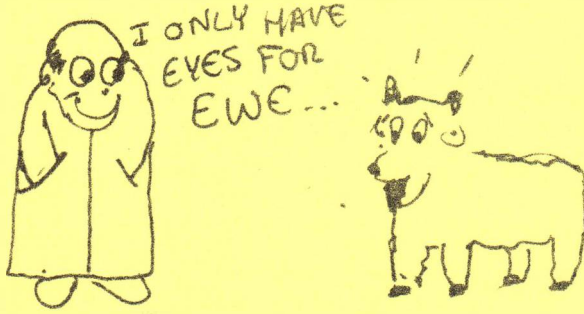 I ONLY HAVE
EYES FOR
EWE...